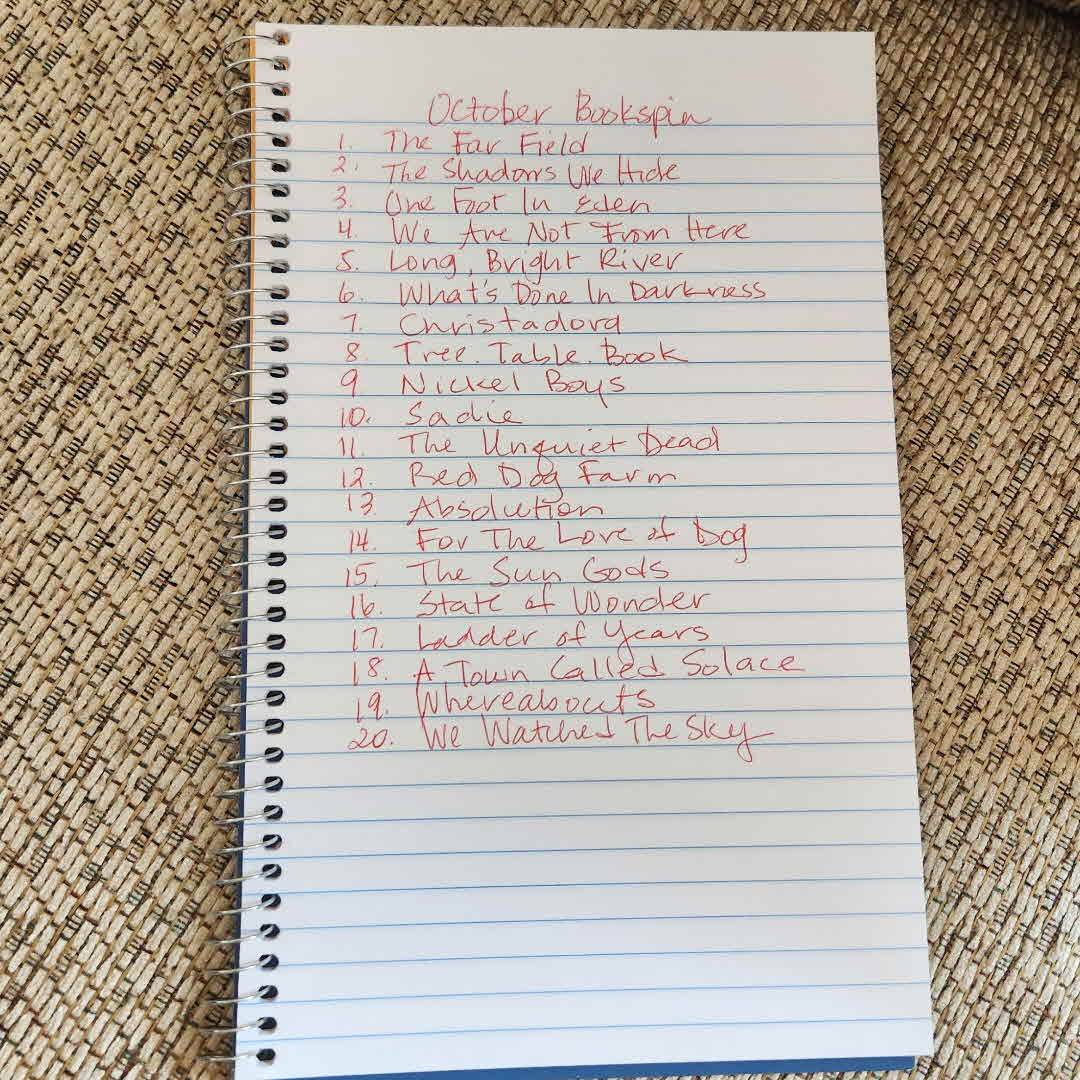 October Bookspin
1. The Far Field
2. The Shadows We Hide
3. One Foot In Eden
4. We Are Not From Here
5. Long, Bright River
6. What's Done In Darkness
7. Christadora
8. Tree. Table. Book
9 Nickel Boys
10. Sadie
11. The Unquiet Dead
12. Red Dog Farm
13. Absolution
14. For The Love of Dog
15. The Sun Gods
16. State of Wonder
17. Ladder of Years
18. A Town Called Solace
19. Whereabouts
20. We Watched The Sky